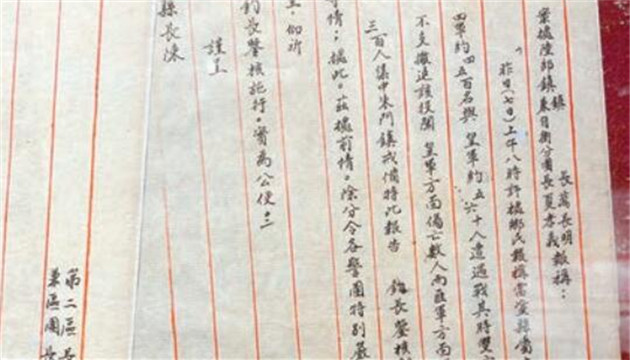 案據陸郎鎮鎮長萬長明
兼自衛分團長夏孝義報稱：
「昨日(七日)上午八時許據鄉民報稱當塗縣
四軍約四五百名與 皇軍約五六十人遭遇戰其時雙
不支撤退該役聞 皇軍方面傷亡數人而匪軍方面
三百人集中朱門鎮戒備特此報告 鈞長鑒核
等情；據此。茲據前情。除分令各警團特別嚴
上，仰祈
鈞長鑒核施行。實為公便！
謹呈
縣長陳
第二區長
兼區團長